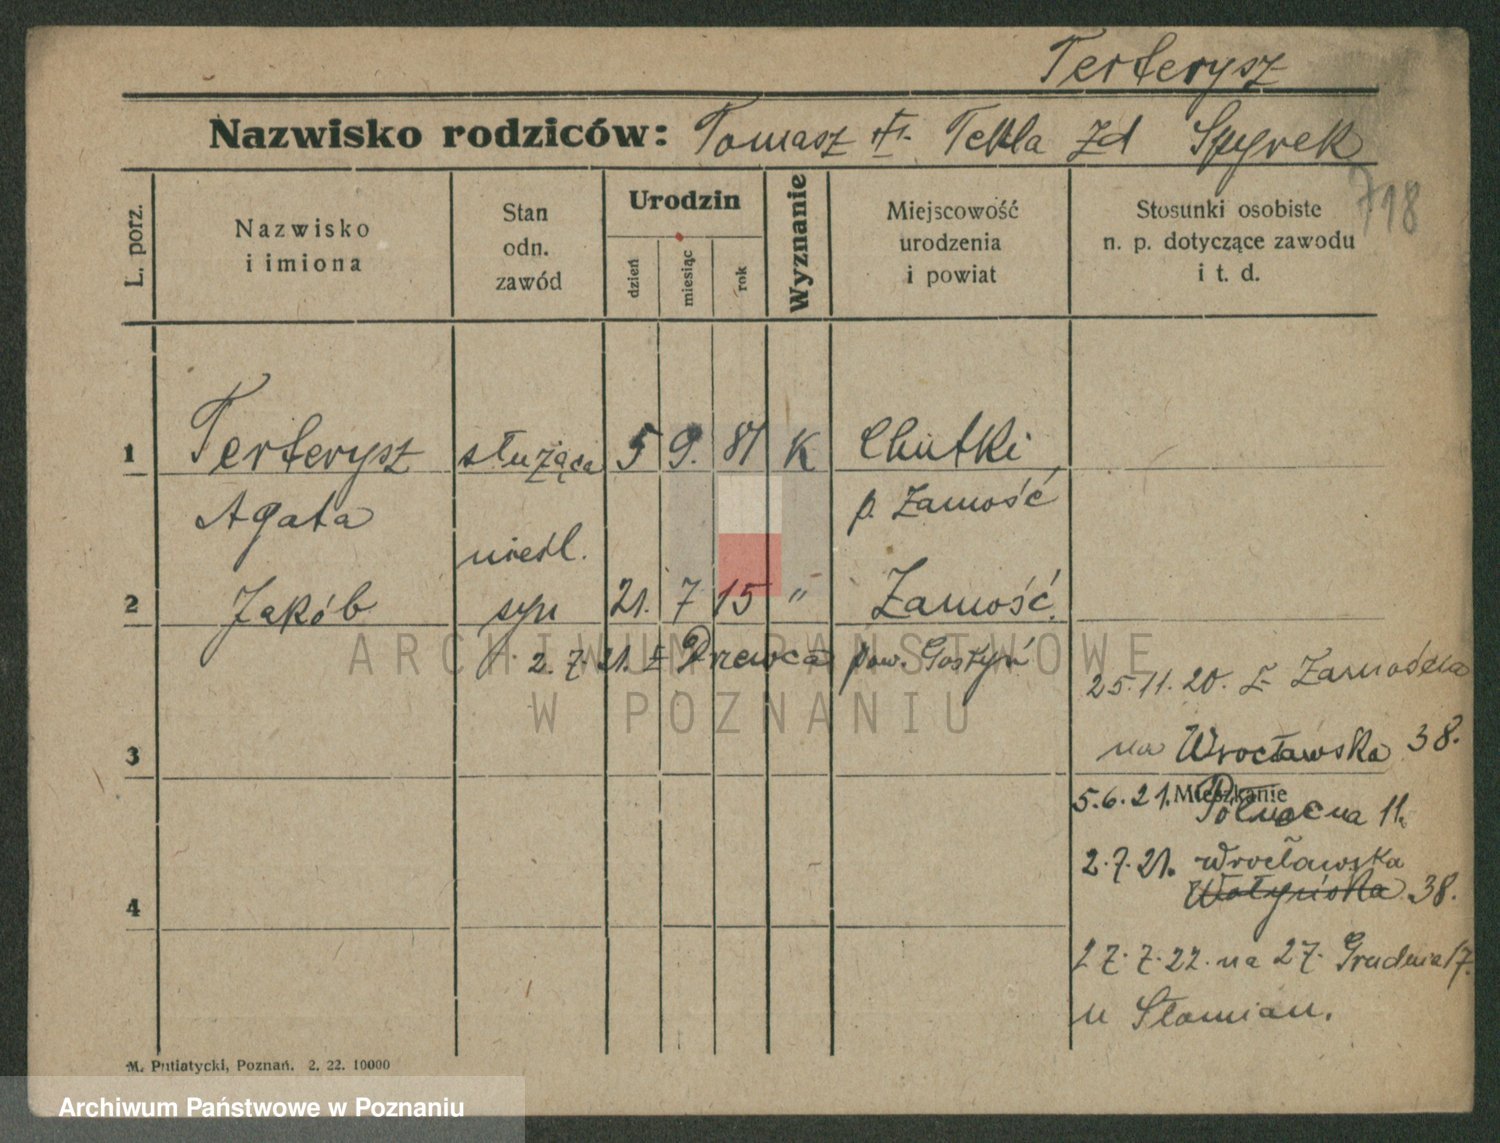 Terterysz
Nazwisko rodziców: Tomasz Tekla zd Spyrek
718
L. porz.
Nazwisko
i imiona
Stan
odn.
zawód
Urodzin
dzień
miesiąc
rok
Wyznanie
Miejscowość
urodzenia
i powiat
Stosunki osobiste
n. p. dotyczące zawodu
i t. d.
1 Terterysz służąca 5 9. 81 K Chutki
Agata p. Zamość
nieśl.
2 Jakób syn 21. 7 15 " Zamość.
2. 7. 21. z Drewca pow. Gostyń
25.11.20. z Zamościa
na Wrocławska 38.
3
Mieszkanie
5.6.21. Północna 11.
2.7.21. Wrocławska
Wołyńska 38.
4
27.7.22. na 27. Grudnia 17.
u Słomian.
M. Putiatycki, Poznań. 2. 22. 10000
ARCHIWUM PAŃSTWOWE
W POZNANIU
Archiwum Państwowe w Poznaniu